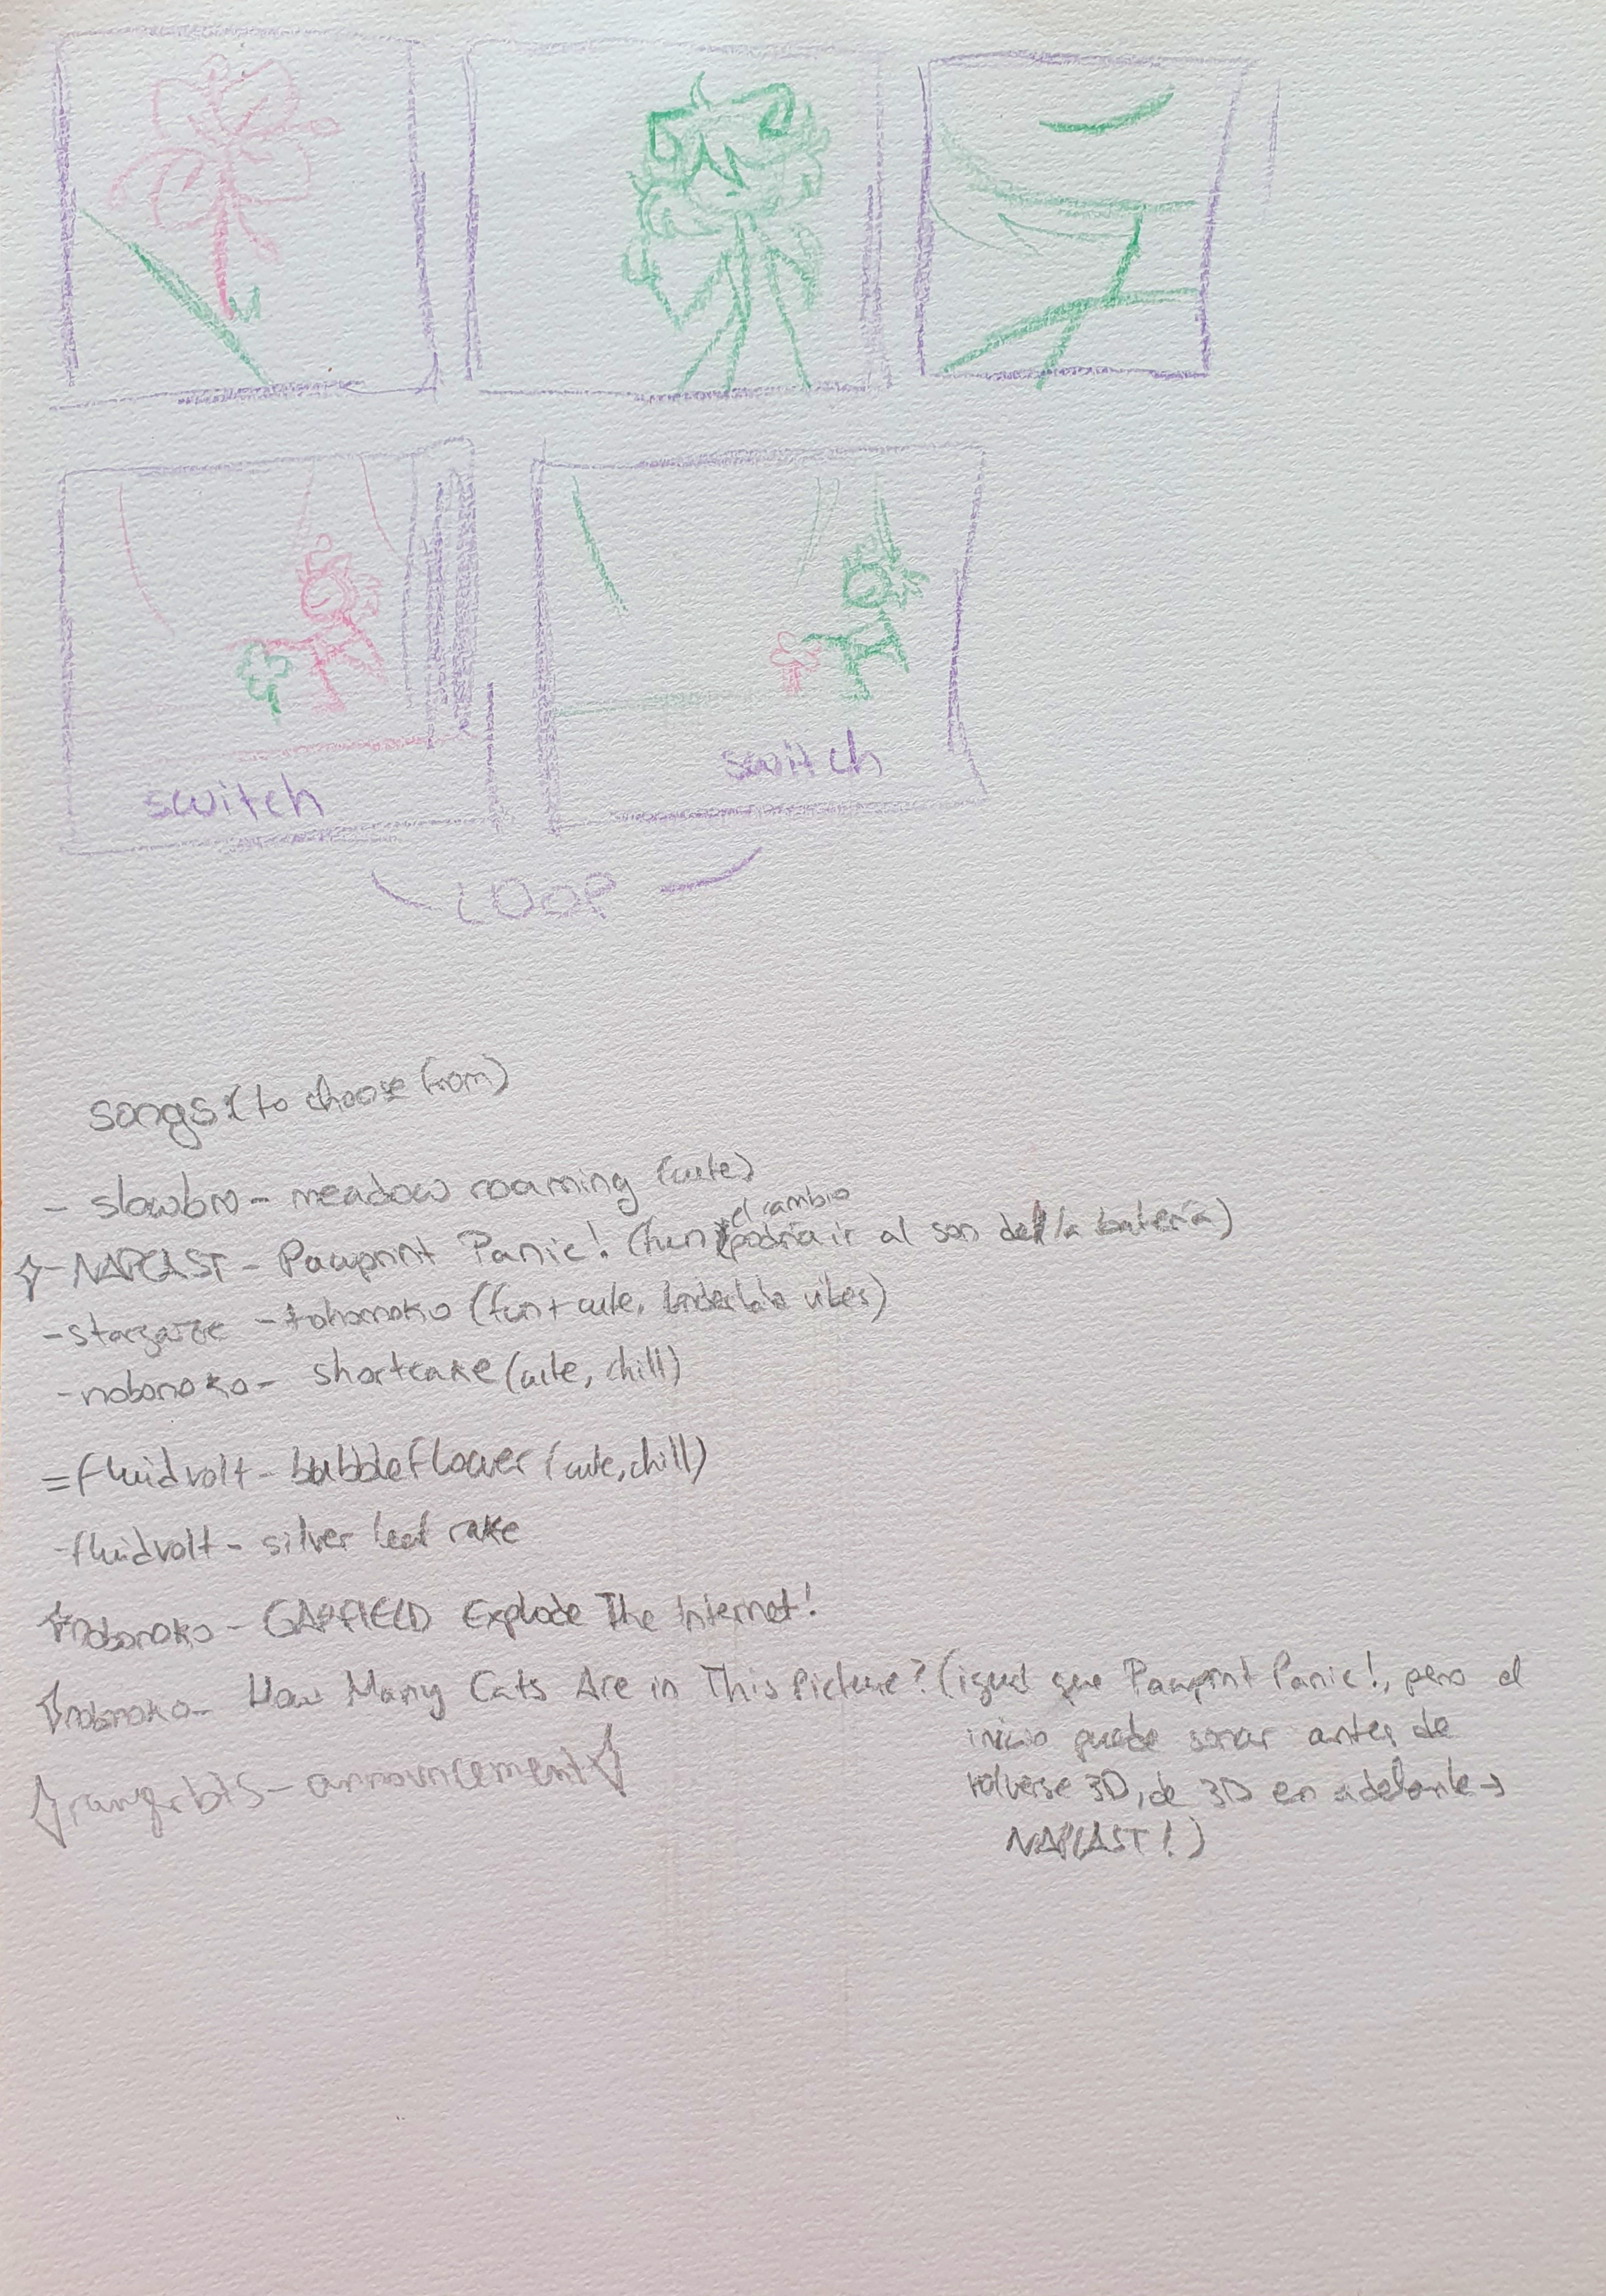 switch
switch
LOOP
songs: (to choose from)
- slowbro - meadow roaming (cute)
- NAPCAST - Pawprint Panic! (fun, el cambio podría ir al son de la batería)
- stargaze - (fun + cute, vibes)
- nobonoko - shortcake (cute, chill)
= fluidvolt - bubbleflower (cute, chill)
- fluidvolt - silver leaf rake
nobonoko - GARFIELD Explode The Internet!
nobonoko - How Many Cats Are in This Picture? (igual que Pawprint Panic!, pero el
inicio puede sonar antes de
volverse 3D, de 3D en adelante →
NAPCAST!)
- announcement